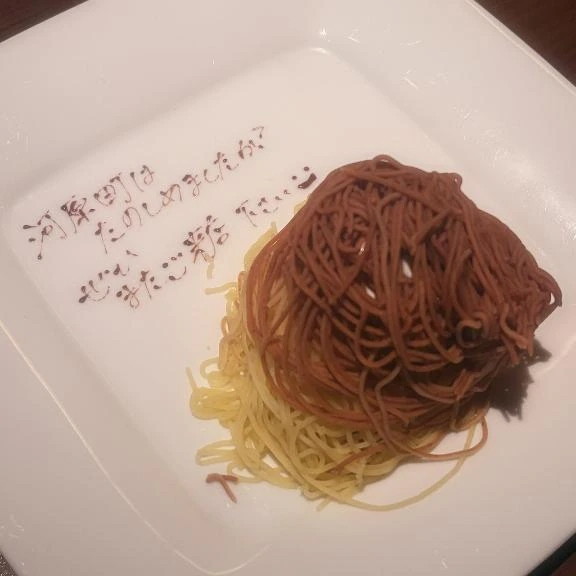 河原町は
たのしめましたか?
ぜひ
またご来店下さい